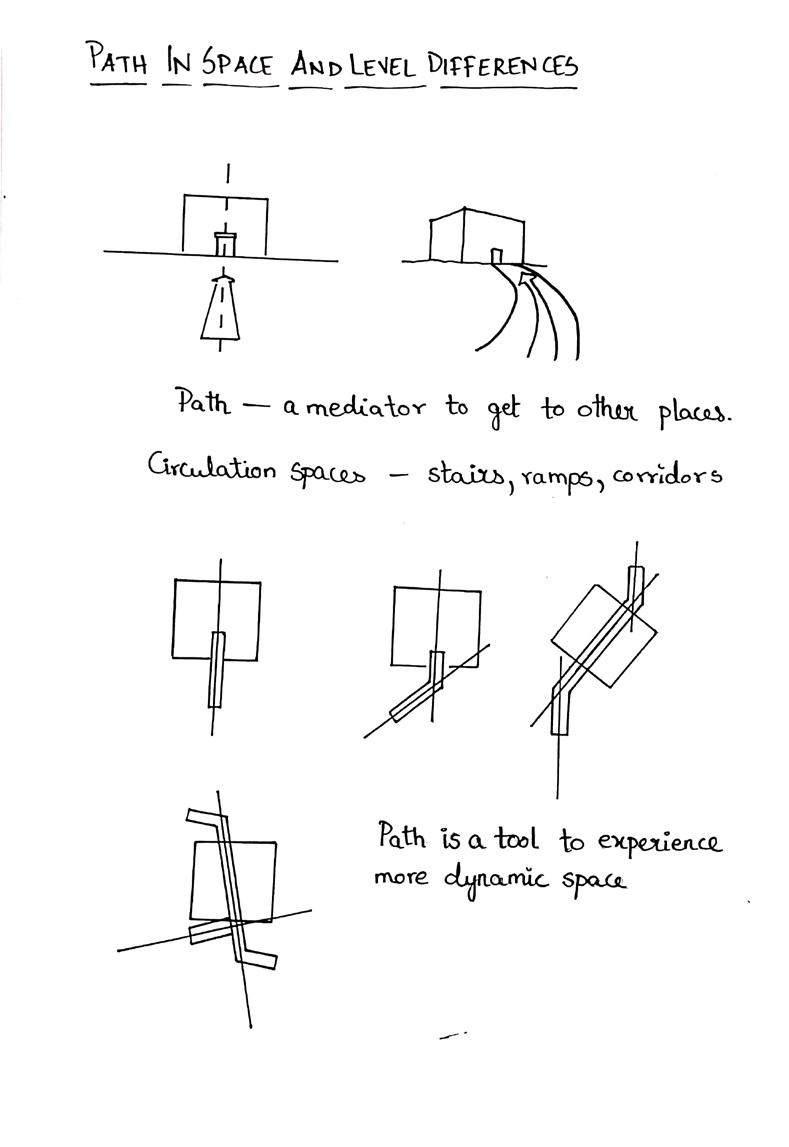 PATH IN SPACE AND LEVEL DIFFERENCES
Path — a mediator to get to other places.
Circulation spaces — stairs, ramps, corridors
Path is a tool to experience
more dynamic space